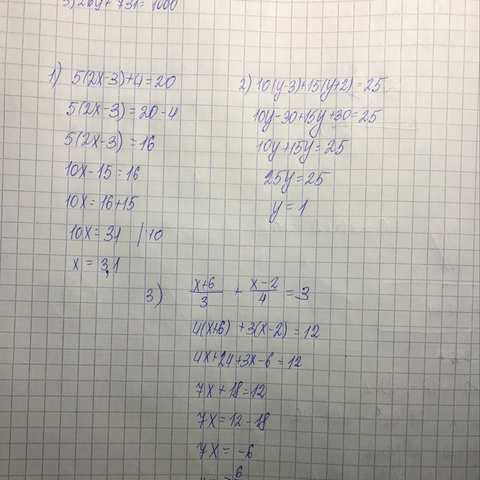 3) 26y + 731 = 1000
1) 5(2x-3)+4=20
5(2x-3)=20-4
5(2x-3)=16
10x-15=16
10x=16+15
10x=31 |:10
x=3,1
2) 10(y-3)+15(y+2)=25
10y-30+15y+30=25
10y+15y=25
25y=25
y=1
3) x+6/3 + x-2/4 = 3
4(x+6)+3(x-2)=12
4x+24+3x-6=12
7x+18=12
7x=12-18
7x=-6
6